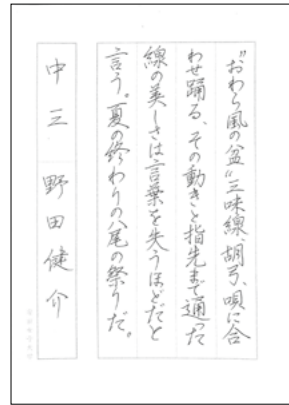 "おわら風の盆"三味線、胡弓、唄に合
わせ踊る、その動きと指先まで通った
線の美しさは言葉を失うほどだと
言う。夏の終わりの八尾の祭りだ。
中三 野田健介